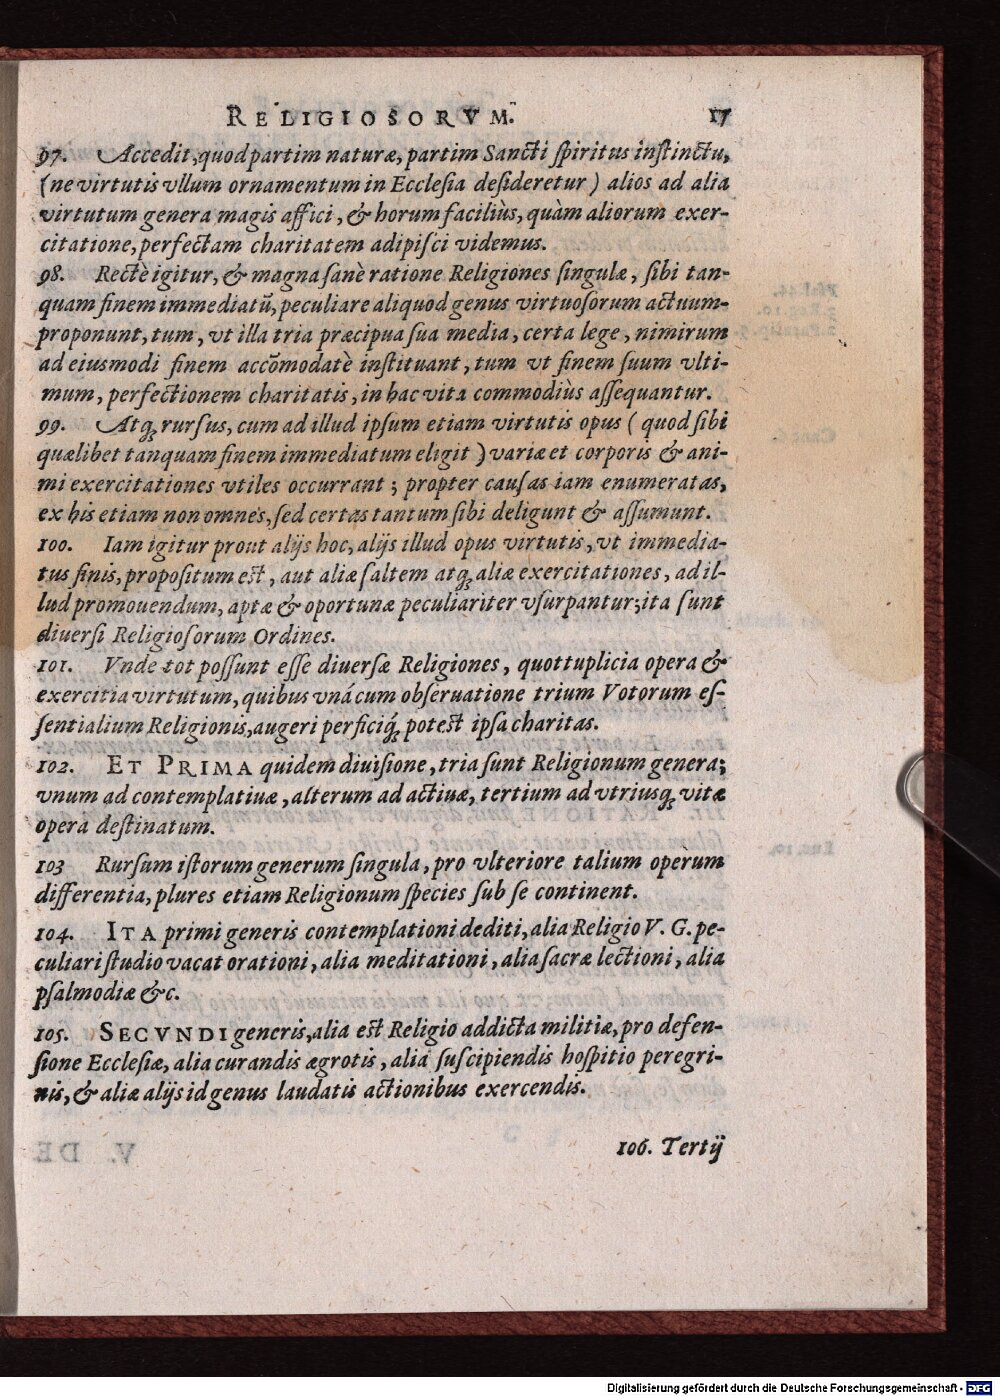 RELIGIOSORVM. 17
97. Accedit, quod partim naturæ, partim Sancti spiritus instinctu,
(ne virtutis vllum ornamentum in Ecclesia desideretur) alios ad alia
virtutum genera magis affici, & horum faciliùs, quàm aliorum exer-
citatione, perfectam charitatem adipisci videmus.
98. Rectè igitur, & magna sanè ratione Religiones singulæ, sibi tan-
quam finem immediatū, peculiare aliquod genus virtuosorum actuum
proponunt, tum, vt illa tria præcipua sua media, certa lege, nimirum
ad eiusmodi finem accōmodatè instituant, tum vt finem suum vlti-
mum, perfectionem charitatis, in hac vita commodiùs assequantur.
99. Atq; rursus, cum ad illud ipsum etiam virtutis opus (quod sibi
quælibet tanquam finem immediatum eligit) variæ et corporis & ani-
mi exercitationes vtiles occurrant; propter causas iam enumeratas,
ex his etiam non omnes, sed certas tantum sibi deligunt & assumunt.
100. Iam igitur prout alijs hoc, alijs illud opus virtutis, vt immedia-
tus finis, propositum est, aut aliæ saltem atq; aliæ exercitationes, ad il-
lud promouendum, aptæ & oportunæ peculiariter vsurpantur; ita sunt
diuersi Religiosorum Ordines.
101. Vnde tot possunt esse diuersæ Religiones, quottuplicia opera &
exercitia virtutum, quibus vná cum obseruatione trium Votorum es-
sentialium Religionis, augeri perficiq́; potest ipsa charitas.
102. ET PRIMA quidem diuisione, tria sunt Religionum genera;
vnum ad contemplatiuæ, alterum ad actiuæ, tertium ad vtriusq; vitæ
opera destinatum.
103 Rursum istorum generum singula, pro vlteriore talium operum
differentia, plures etiam Religionum species sub se continent.
104. ITA primi generis contemplationi dediti, alia Religio V. G. pe-
culiari studio vacat orationi, alia meditationi, alia sacræ lectioni, alia
psalmodiæ &c.
105. SECVNDI generis, alia est Religio addicta militiæ, pro defen-
sione Ecclesiæ, alia curandis ægrotis, alia suscipiendis hospitio peregri-
nis, & aliæ alijs id genus laudatis actionibus exercendis.
106. Tertij
Digitalisierung gefördert durch die Deutsche Forschungsgemeinschaft - DFG